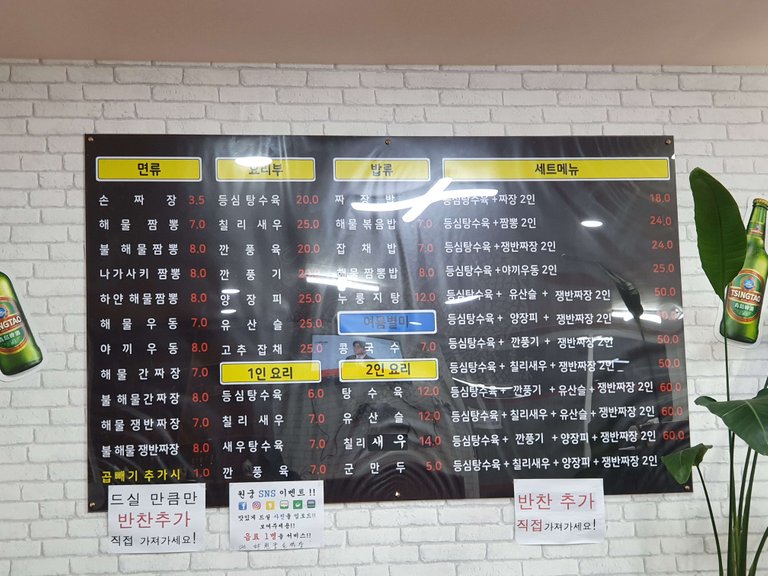 면류
손 짜 장 3.5
해 물 짬 뽕 7.0
불 해물짬뽕 8.0
나가사키 짬뽕 8.0
하얀 해물짬뽕 8.0
해 물 우 동 7.0
야 끼 우 동 8.0
해 물 간 짜 장 7.0
불 해물간짜장 8.0
해물 쟁반짜장 7.0
불해물 쟁반짜장 8.0
곱빼기 추가시 1.0
요리부
등심 탕수육 20.0
칠 리 새 우 25.0
깐 풍 육 20.0
깐 풍 기
양 장 피 25.0
유 산 슬 25.0
고추 잡채 25.0
1인 요리
등심탕수육 6.0
칠 리 새 우 7.0
새우탕수육 7.0
깐 풍 육 7.0
밥류
짜 장 밥
해물볶음밥 7.0
잡 채 밥 7.0
해물짬뽕밥 8.0
누 룽 지 탕 12.0
여름별미
콩 국 수 7.0
2인 요리
탕 수 육 12.0
유 산 슬 12.0
칠리 새우 14.0
군 만 두 5.0
세트메뉴
등심탕수육 +짜장 2인 18.0
등심탕수육 +짬뽕 2인 24.0
등심탕수육 +쟁반짜장 2인 24.0
등심탕수육 +야끼우동 2인 25.0
등심탕수육 + 유산슬 + 쟁반짜장 2인 50.0
등심탕수육 + 양장피 + 쟁반짜장 2인 50.0
등심탕수육 + 깐풍기 + 쟁반짜장 2인 50.0
등심탕수육 + 칠리새우 + 쟁반짜장 2인 50.0
등심탕수육 + 깐풍기 + 유산슬+ 쟁반짜장 2인 60.0
등심탕수육 + 칠리새우 + 유산슬+ 쟁반짜장 2인 60.0
등심탕수육 + 깐풍기 + 양장피+ 쟁반짜장 2인 60.0
등심탕수육 + 칠리새우 + 양장피+ 쟁반짜장 2인
드실 만큼만
반찬추가
직접 가져가세요!
원궁 SNS 이벤트!!
맛있게 드신 사진을 업로드!!
보여주세요!!
음료 1병을 서비스!!
반찬 추가
직접가져가세요!
TSINGTAO
TSINGTAO